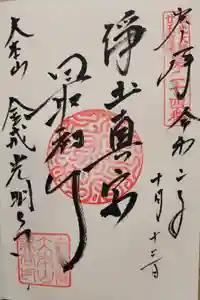 奉拝 令和二年
十月十二日
淨土真宗
最初門
大本山
金戒光明寺